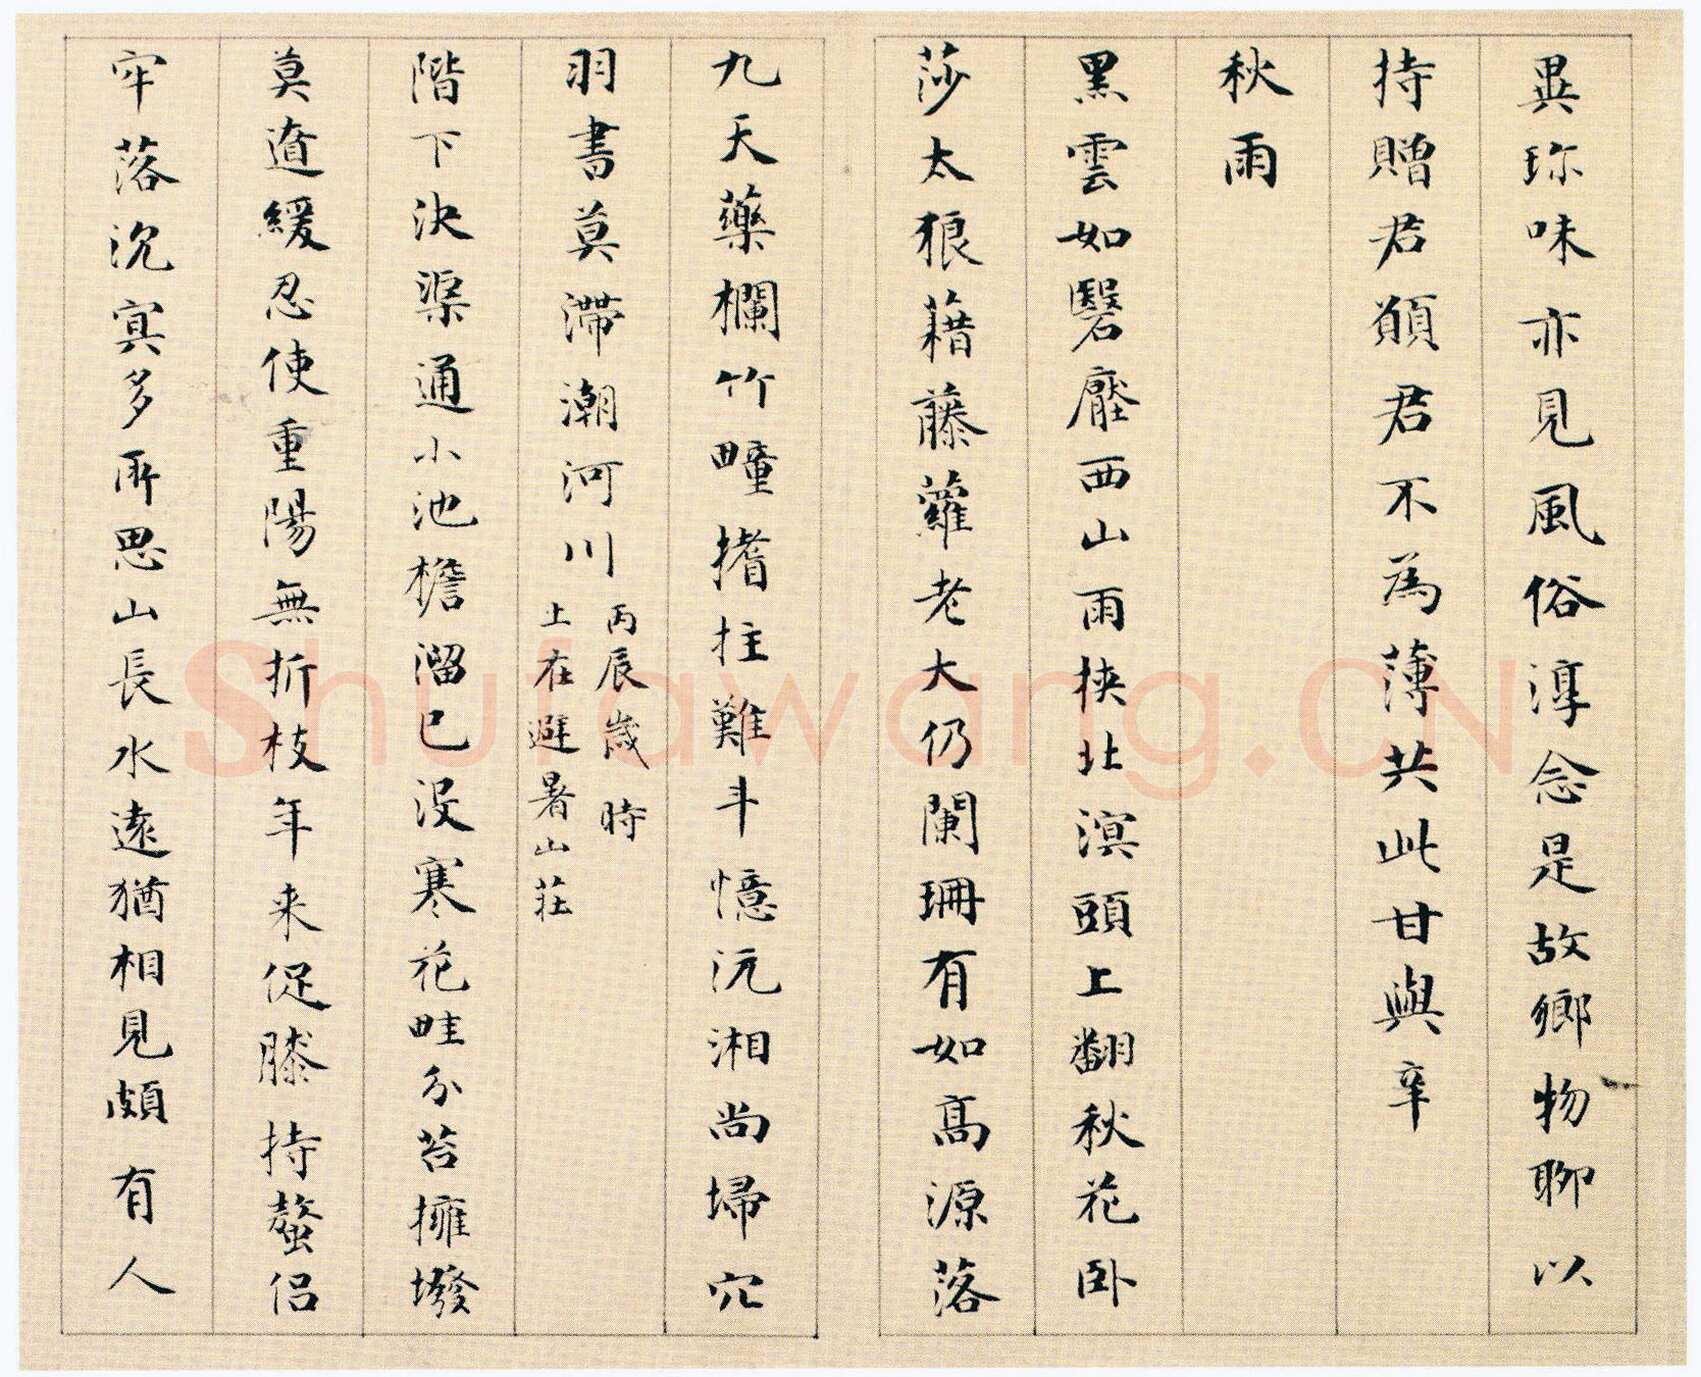 異珎味亦見風俗淳念是故鄉物聊以
持贈君願君不為薄共此甘與辛
秋雨
黑雲如磬壓西山雨挾北溟頭上翻秋花卧
莎太狼藉藤蘿老大仍闌珊有如高源落
九天藥欄竹疃搘拄難斗憶沅湘尚埽穴
羽書莫滯潮河川
丙辰歲時
上在避暑山莊
階下決渠通小池檐溜已沒寒花畦分苔擁墢
莫遼緩忍使重陽無折枝年来促膝持螯侣
牢落沉冥多所思山長水遠猶相見頗有人
Shufawang.CN